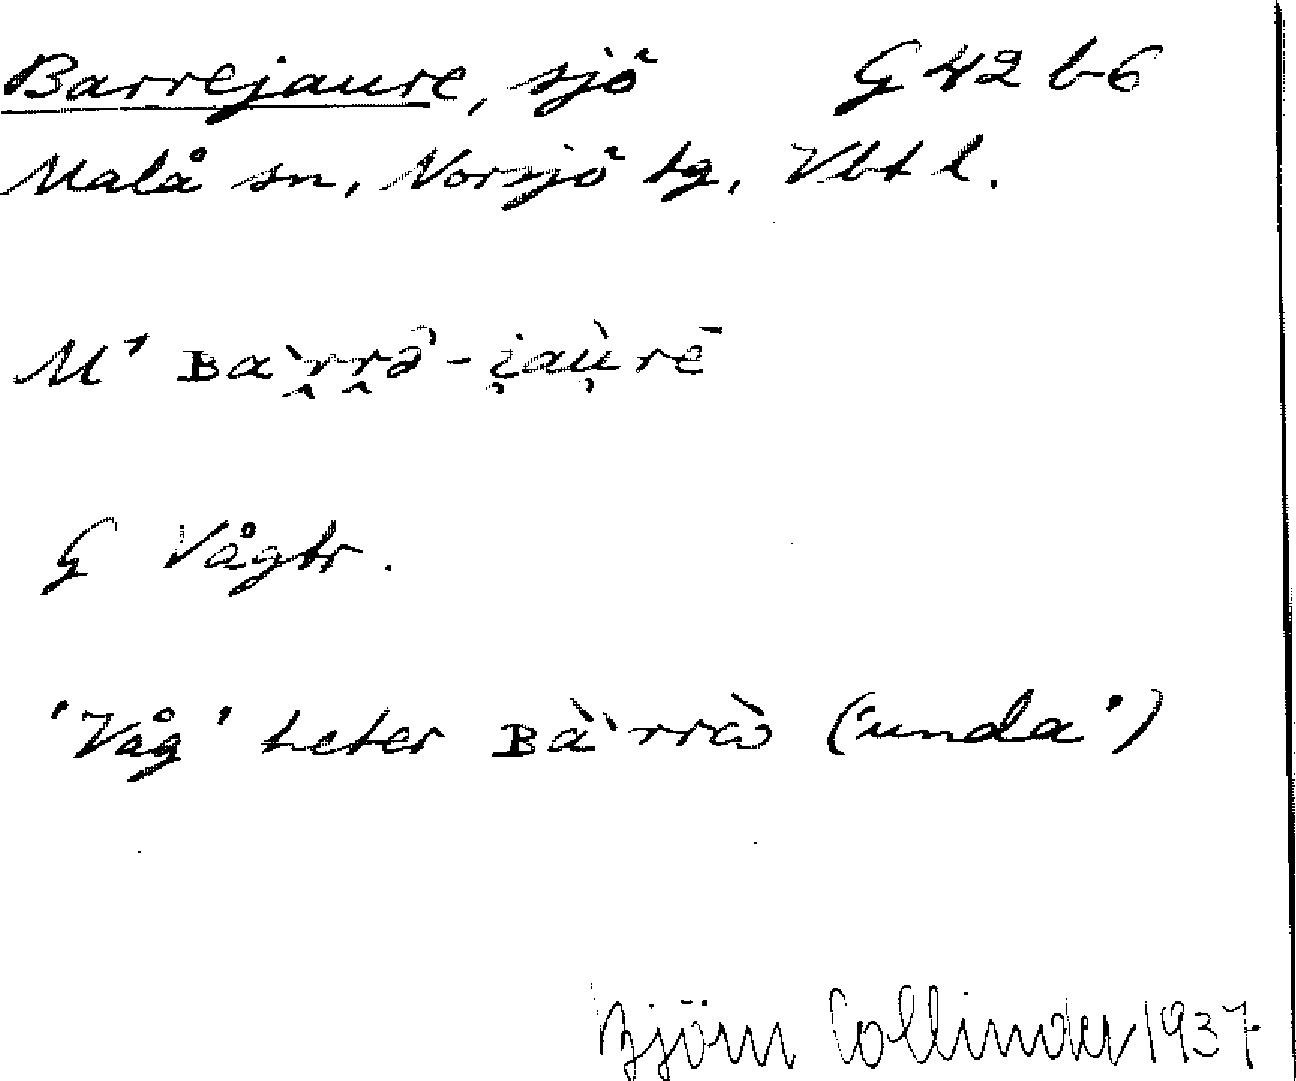 Barrejaure, sjö G 42 b 6
Malå sn, Norsjö tg, Vbt l.
M¹ ʙàr̭r̭ə̀-i̯aù̯rē
G Vågtr.
'Våg' heter ʙà̀rrɑ̀ ('unda')
Björn Collinder 1937